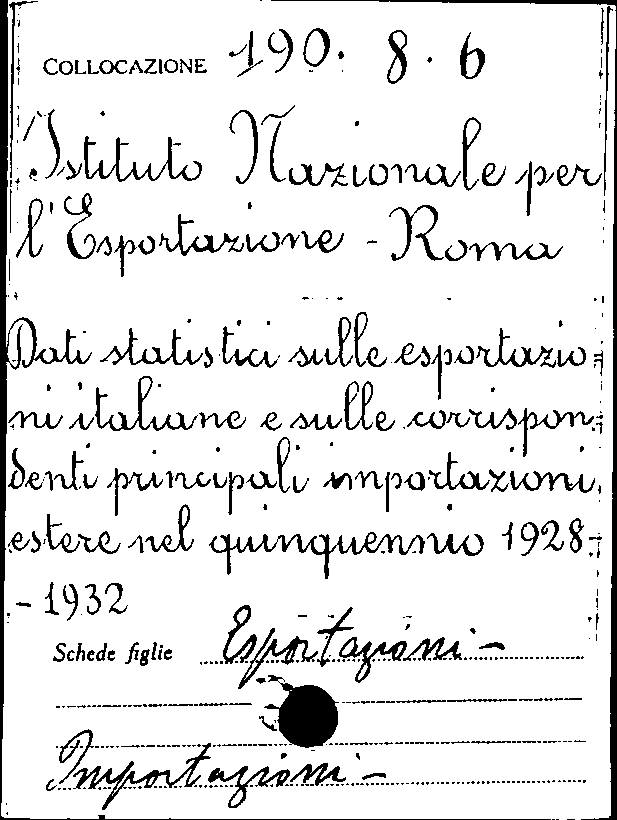 COLLOCAZIONE 190. 8. 6
Istituto Nazionale per
l'Esportazione - Roma
Dati statistici sulle esportazio=
ni italiane e sulle corrispon=
denti principali importazioni
estere nel quinquennio 1928-
- 1932
Schede figlie Esportazioni -
Importazioni -